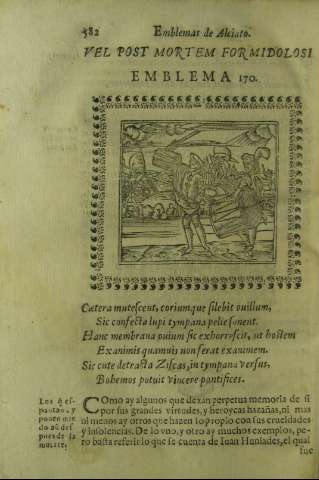 582 Emblemas de Alciato.
VEL POST MORTEM FORMIDOLOSI
EMBLEMA 170.
Cætera mutescent, coriumque silebit ouillum,
Sic confecta lupi tympana pelle sonent.
Hanc membrana ouium sic exhorrescit, ut hostem
Exanimis quamuis non ferat exanimem.
Sic cute detracta Ziscas, in tympana versus,
Bohemos potuit vincere pontifices.
Como ay algunos que dexan perpetua memoria de si
por sus grandes virtudes, y heroycas hazañas, ni mas
ni menos ay otros que hazen lo propio con sus crueldades
y insolencias. De lo vno, y otro ay muchos exemplos, pe-
ro basta referir lo que se cuenta de Iuan Huniades, el qual
fue
Los q̃ es-
pantan, y
ponen mie
do aũ des
pues de la
muerte.